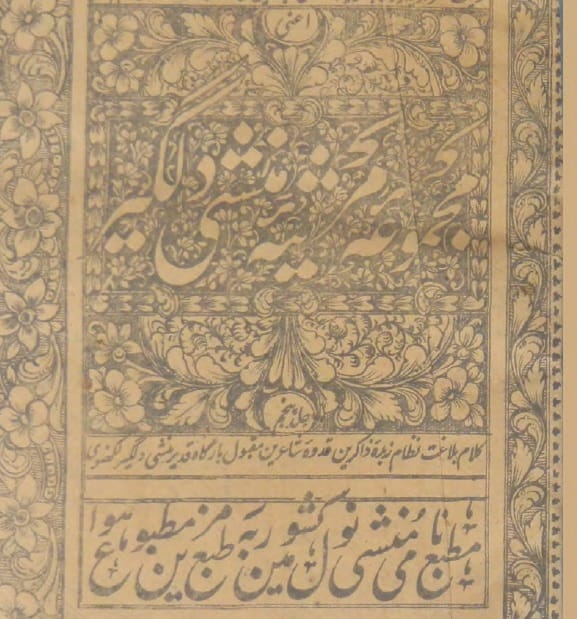 اعنی
مجموعہ مرثیہ منشی دلگیر
جلد پنجم
کلام بلاغت نظام زبدۂ ذاکرین قدوۂ شاعرین مقبول بارگاہ قدیر منشی دلگیر لکھنوی
مطبع نامی منشی نول کشور میں بہ طبع مزین مطبوع ہوا